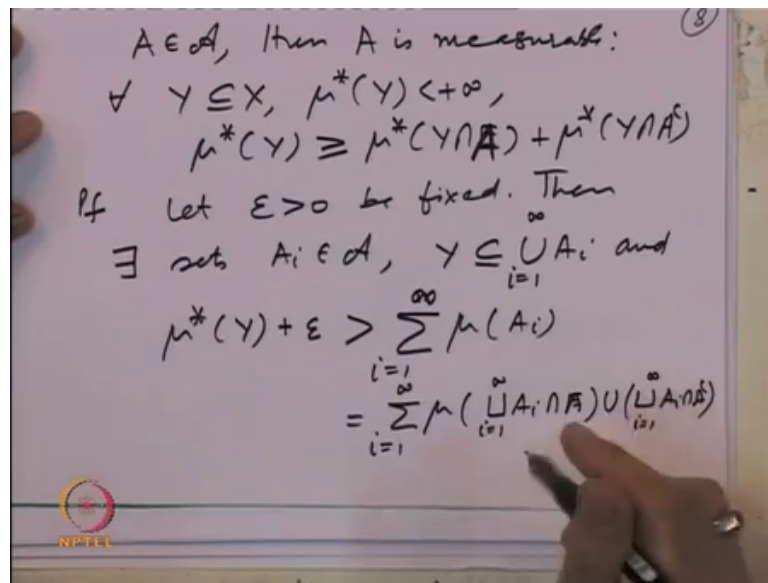 8
A ∈ 𝒜, then A is measurable:
∀ Y ⊆ X, μ*(Y) < +∞,
μ*(Y) ≥ μ*(Y∩A) + μ*(Y∩Aᶜ)
Pf Let ε > 0 be fixed. Then
∃ sets Aᵢ ∈ 𝒜, Y ⊆ ∞⋃i=1 Aᵢ and
μ*(Y) + ε > ∞∑i=1 μ(Aᵢ)
= ∞∑i=1 μ(∞⊔i=1 Aᵢ∩A) ∪ (∞⊔i=1 Aᵢ∩Aᶜ)
NPTEL